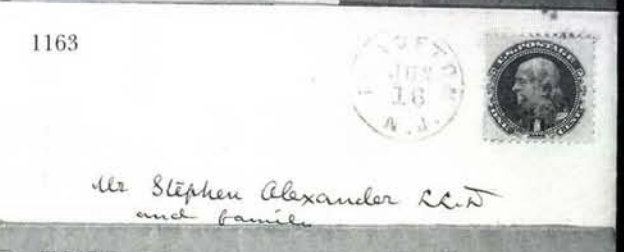 1163
JUN
16
N.J.
U.S. POSTAGE
ONE CENT
1
Mr Stephen Alexander LL.D
and family